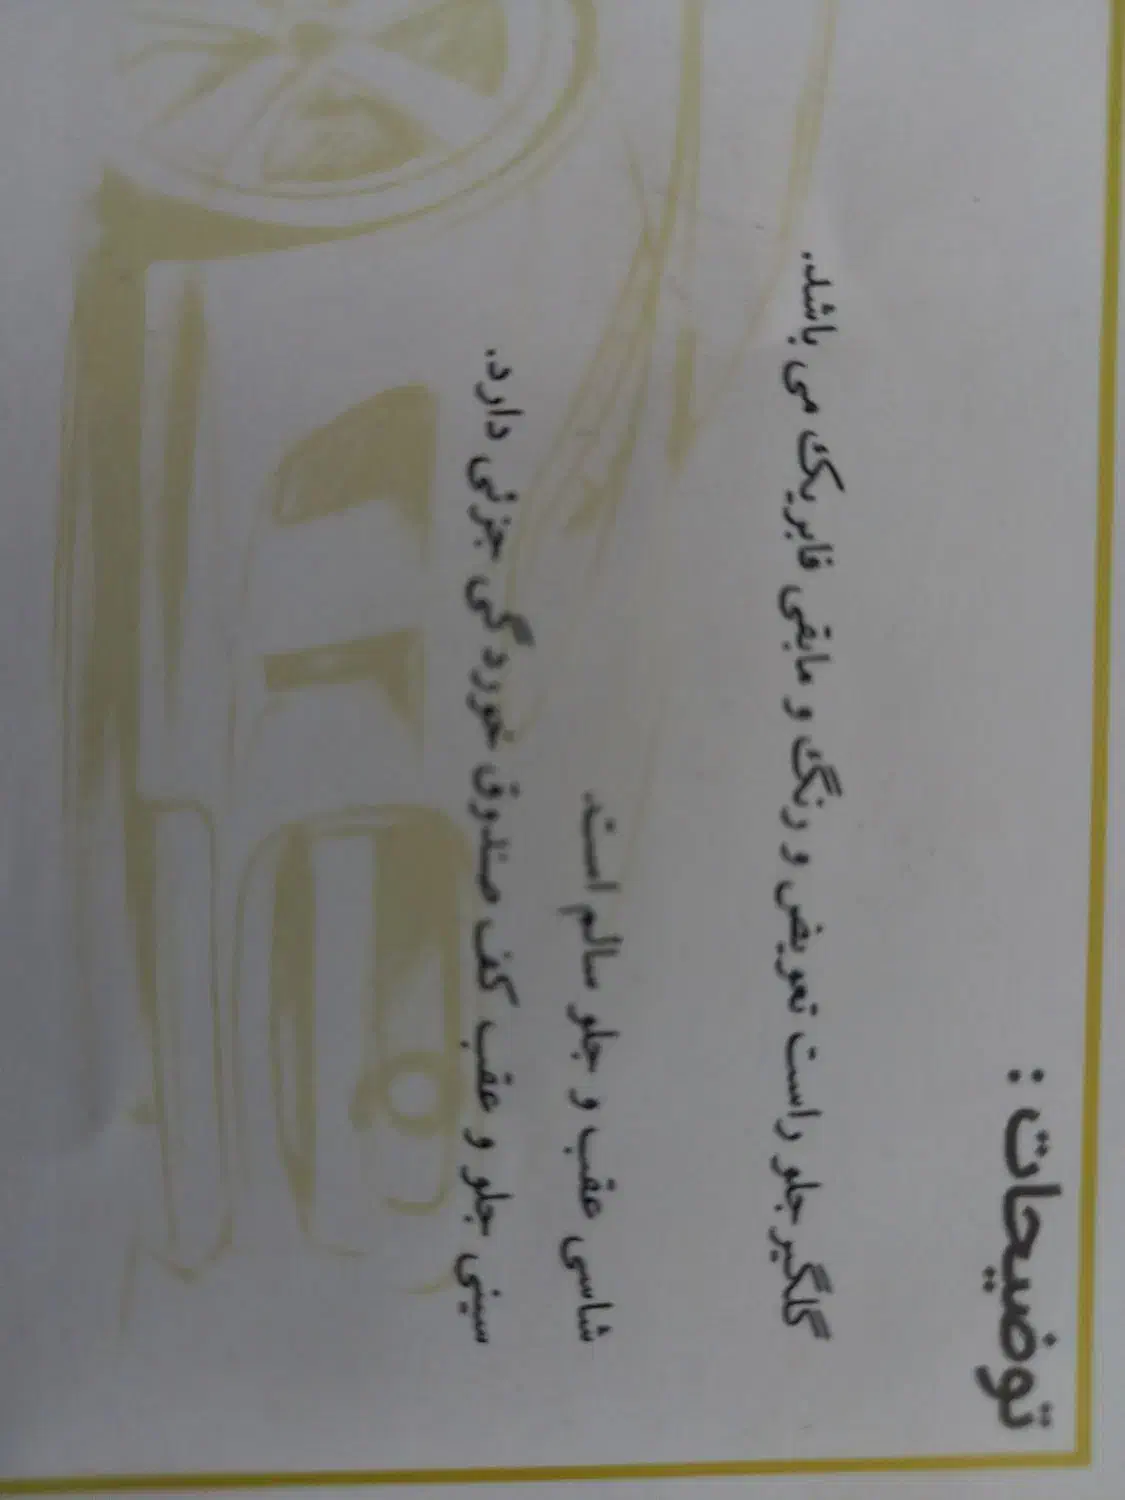 توضیحات :
گلگیر جلو راست تعویض و رنگ و مابقی فابریک می باشد.
شاسی عقب و جلو سالم است.
سینی جلو و عقب کف صندوق خورد گی جزئی دارد.